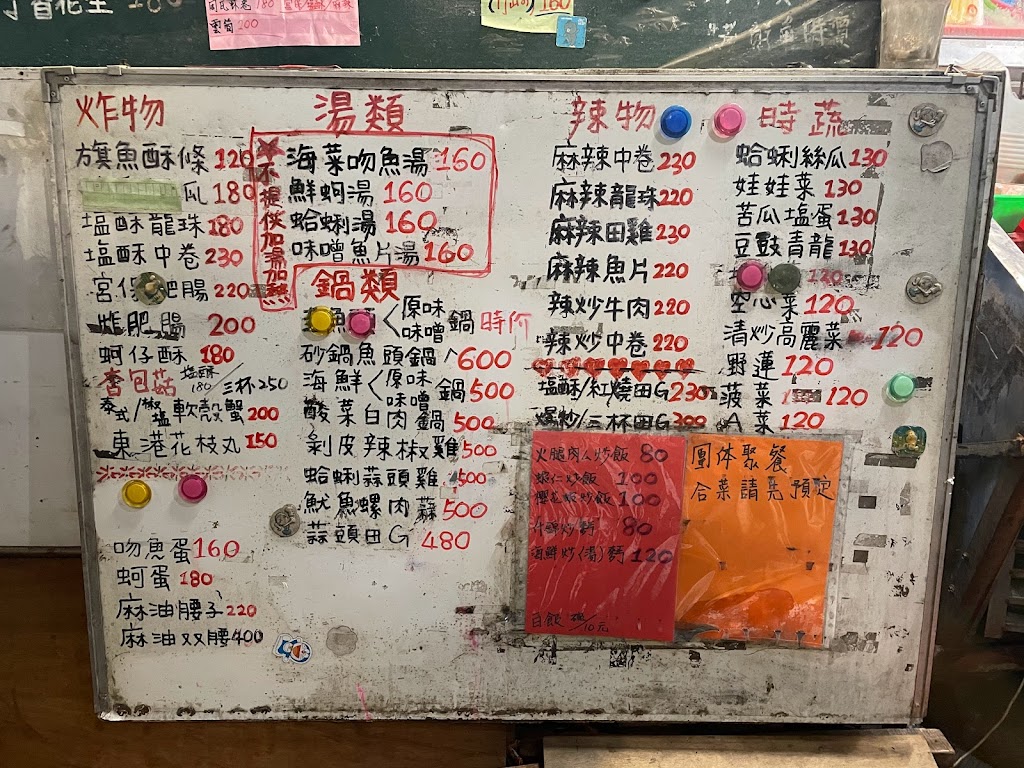 180
180
雲菊 200
160
時價
炸物
旗魚酥條 120
瓜 180
塩酥龍珠 180
塩酥中卷 230
宮保肥腸 220
炸肥腸 200
蚵仔酥 180
杏包菇 塩酥 180/三杯250
泰式/椒塩 軟殼蟹 200
東港花枝丸 150
吻魚蛋 160
蚵蛋 180
麻油腰子 220
麻油双腰 400
湯類
不提供加湯加熱
海菜吻魚湯 160
鮮蚵湯 160
蛤蜊湯 160
味噌魚片湯 160
鍋類
魚頭<原味 味噌 鍋 時价
砂鍋魚頭鍋 600
海鮮<原味 味噌 鍋 500
酸菜白肉鍋 500
剝皮辣椒雞 500
蛤蜊蒜頭雞 500
魷魚螺肉蒜 500
蒜頭田G 480
辣物
麻辣中卷 230
麻辣龍珠 220
麻辣田雞 230
麻辣魚片 220
辣炒牛肉 220
辣炒中卷 220
塩酥/紅燒田G 230
爆炒/三杯田G 300
時蔬
蛤蜊絲瓜 130
娃娃菜 130
苦瓜塩蛋 130
豆豉青龍 130
120
空心菜 120
清炒高麗菜 120
野蓮 120
菠菜 120
A菜 120
火腿肉絲炒飯 80
蝦仁炒飯 100
櫻花蝦炒飯 100
什錦炒麵 80
海鮮炒(湯)麵 120
白飯 碗/10元
團体聚餐
合菜請先預定